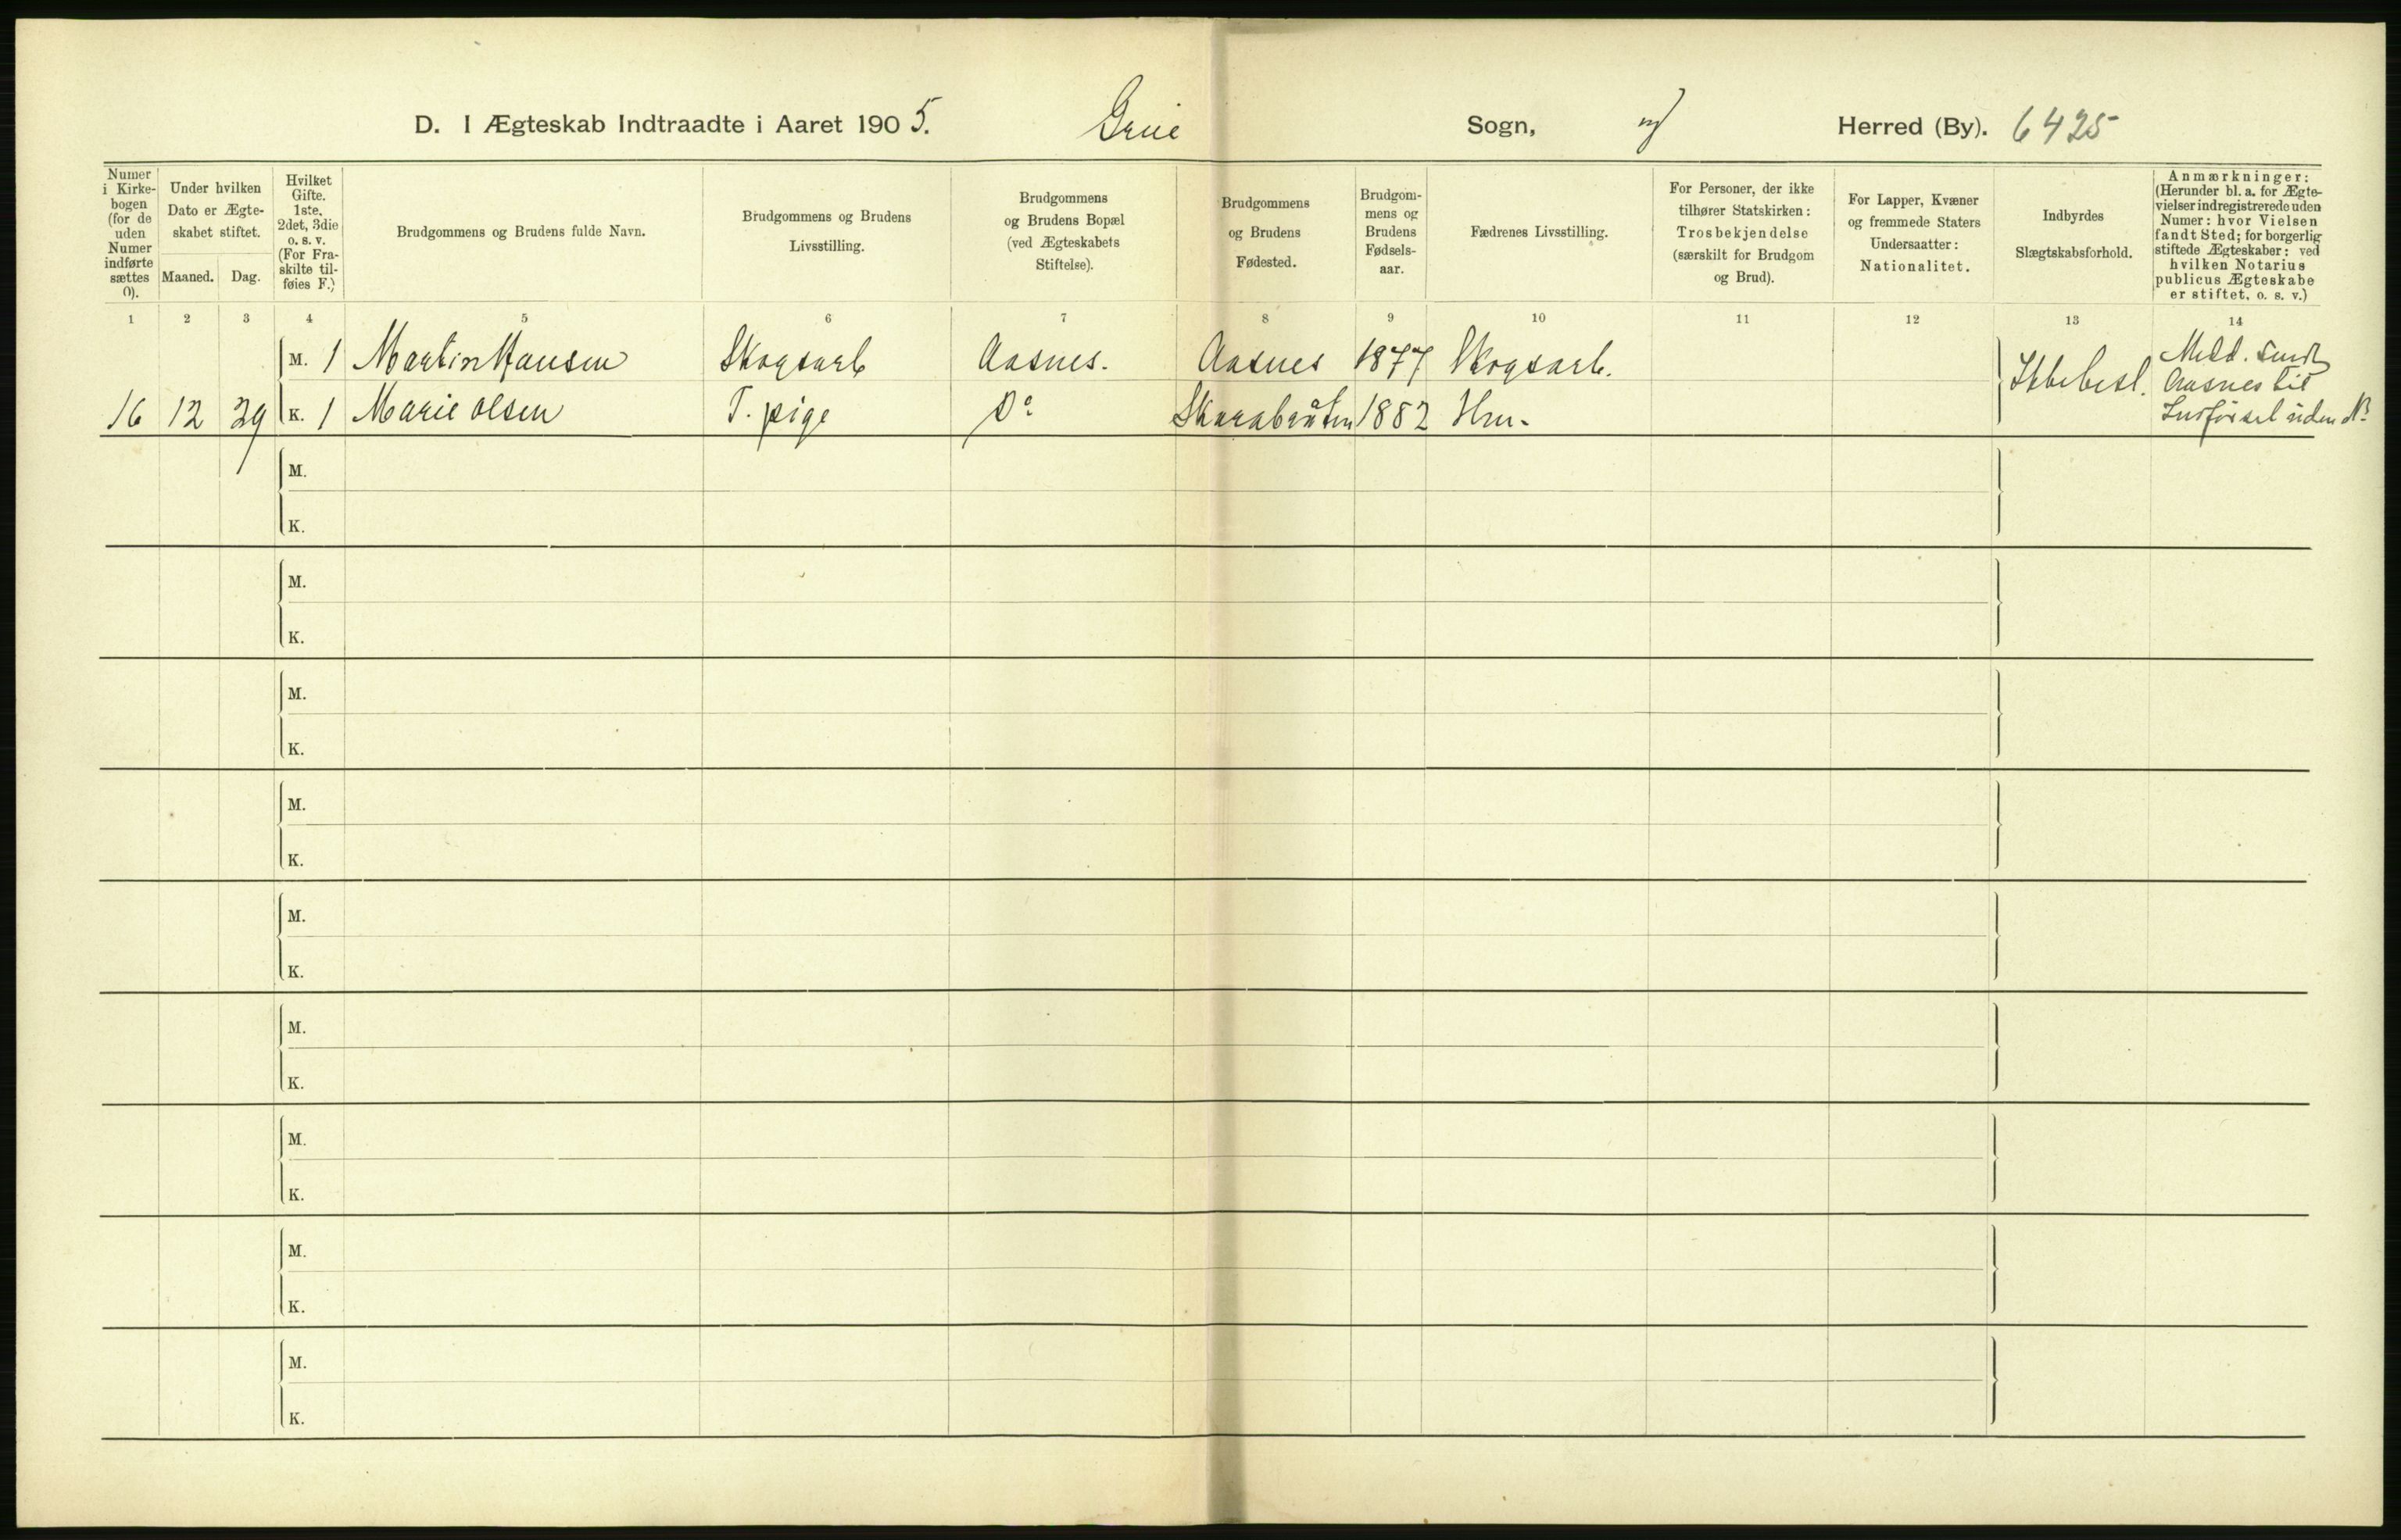 D. I Ægteskab Indtraadte i Aaret 1905. Grue Sogn, Herred (By). 6425
Numer i Kirkebogen (for de uden Numer indførte sættes 0).
Under hvilken Dato er Ægteskabet stiftet.
Maaned. Dag.
Hvilket Gifte. 1ste, 2det, 3die o. s. v. (For Fraskilte tilføies F.)
Brudgommens og Brudens fulde Navn.
Brudgommens og Brudens Livsstilling.
Brudgommens og Brudens Bopæl (ved Ægteskabets Stiftelse).
Brudgommens og Brudens Fødested.
Brudgommens og Brudens Fødselsaar.
Fædrenes Livsstilling.
For Personer, der ikke tilhører Statskirken: Trosbekjendelse (særskilt for Brudgom og Brud).
For Lapper, Kvæner og fremmede Staters Undersaatter: Nationalitet.
Indbyrdes Slægtskabsforhold.
Anmærkninger: (Herunder bl. a. for Ægtevielser indregistrerede uden Numer: hvor Vielsen fandt Sted; for borgerlig stiftede Ægteskaber: ved hvilken Notarius publicus Ægteskabe er stiftet, o. s. v.)
1 2 3 4 5 6 7 8 9 10 11 12 13 14
M. 1 Martin Hansen Skogsarb Aasnes. Aasnes 1877 Skogsarb. Ikke besl. Medd. sendt Aasnes til Indførsel uden No
16 12 29 K. 1 Marie Olsen T. pige Do 1882 Hm.
M.
K.
M.
K.
M.
K.
M.
K.
M.
K.
M.
K.
M.
K.
M.
K.
M.
K.